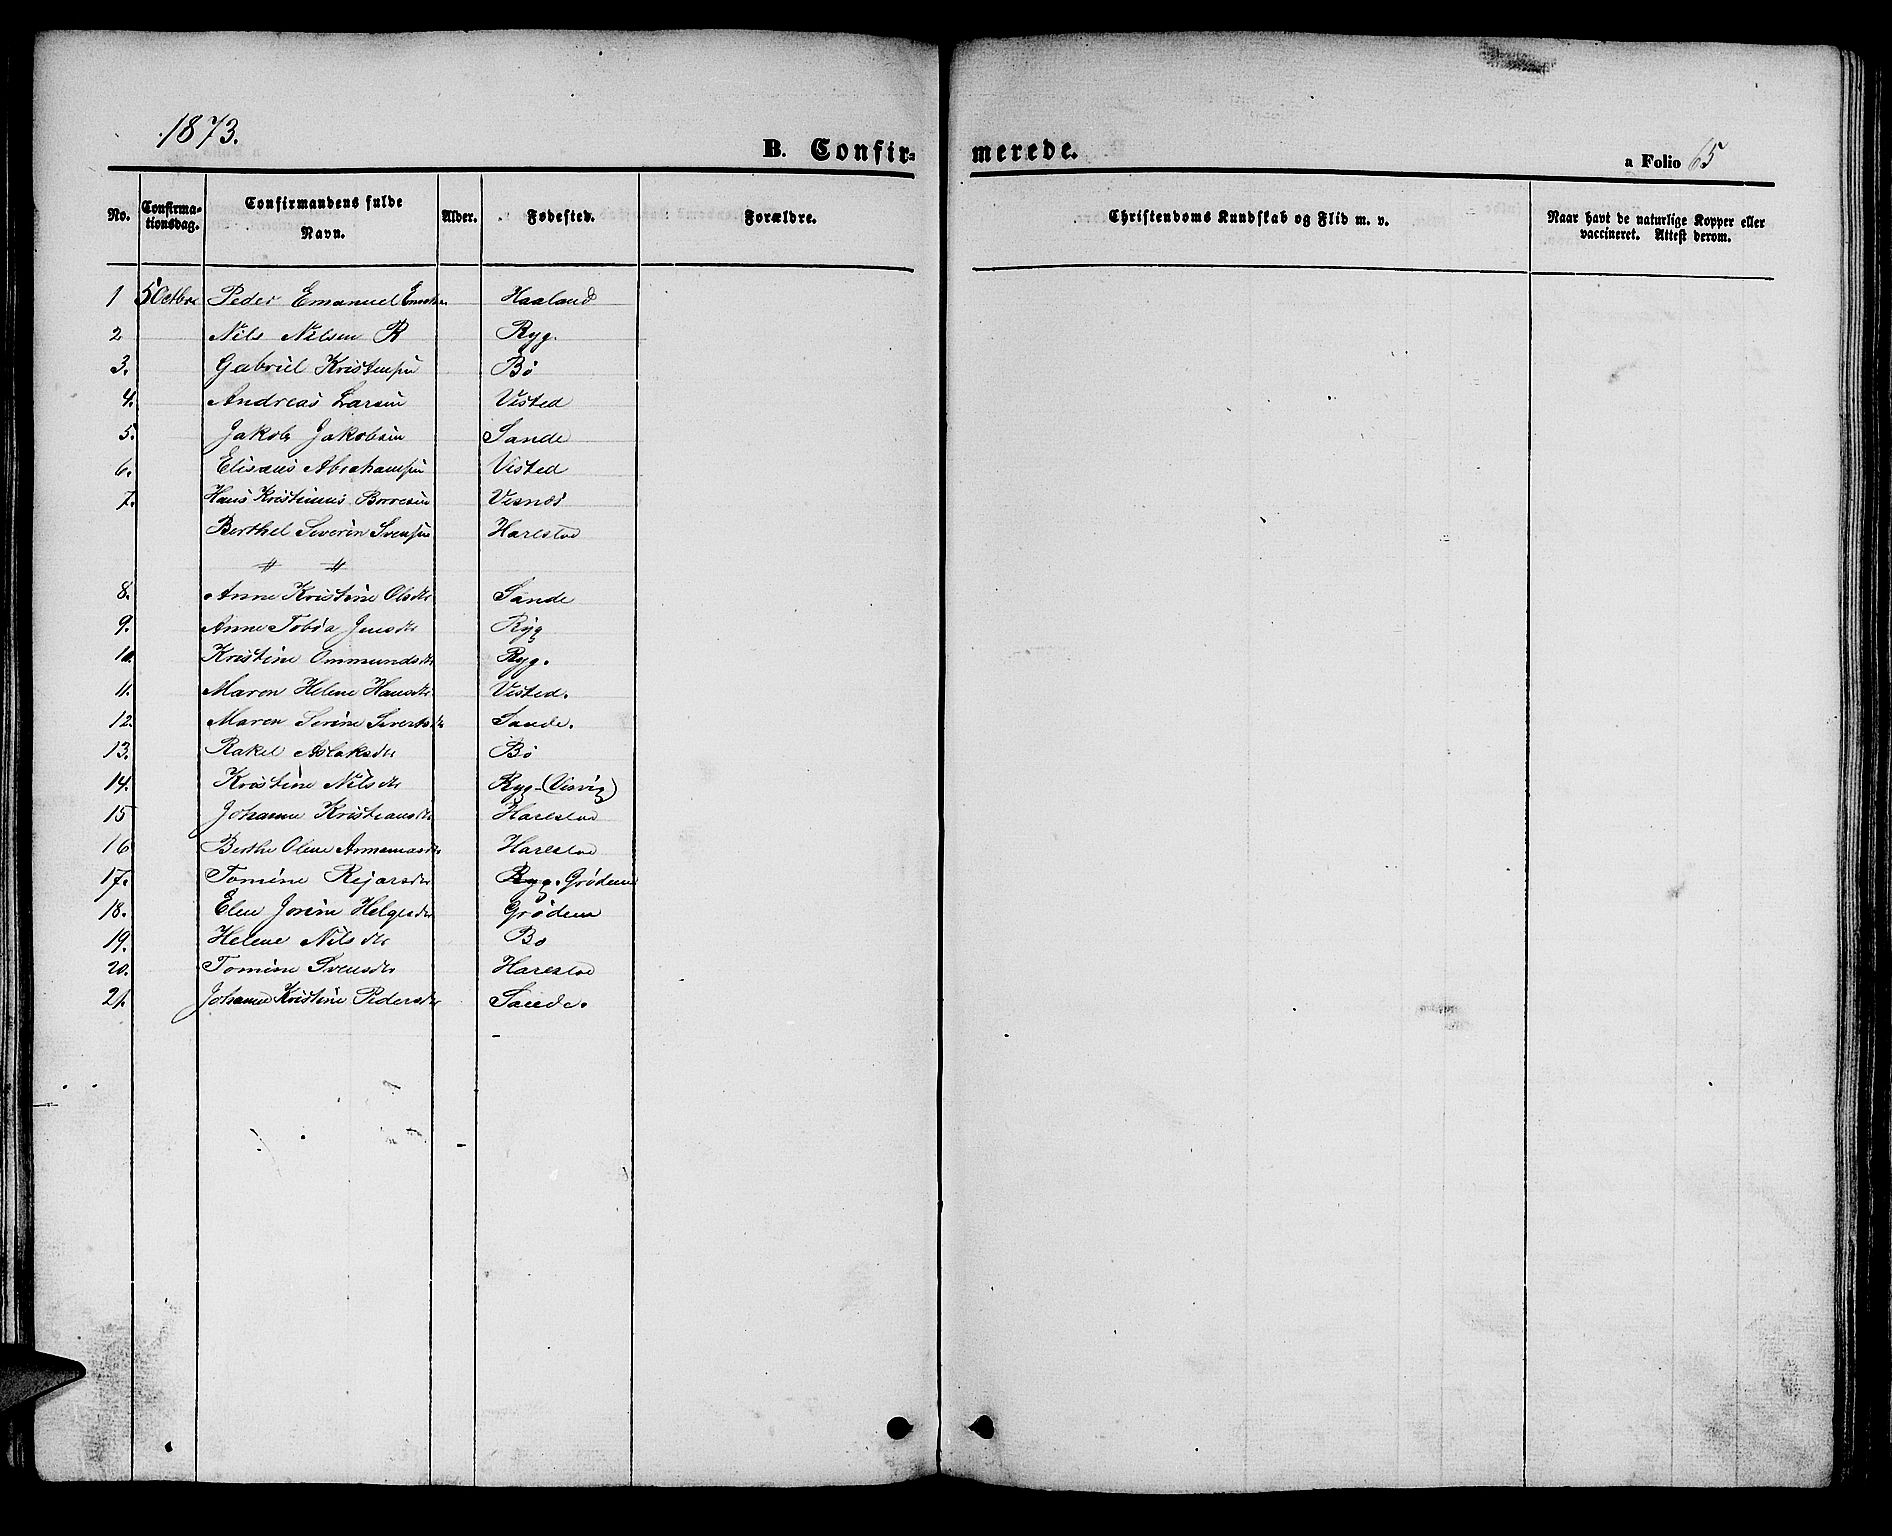 1873.
B. Confirmerede.
a Folio 65
No. Confirmationsdag. Confirmandens fulde Navn. Alder. Fødested. Forældre. Christendoms Kundskab og Flid m. v. Naar havt de naturlige Kopper eller vaccineret. Attest derom.
1 5 Octbre Peder Emanuel Haaland
2 Nils Nilsen R Ryg.
3. Gabriel Kristensen Bø
4. Andreas Larsen Visted
5. Jakob Jakobsen Sande
6. Elisæus Abrahamsen Visted
7. Hans Kristinius Borresen Visnæs
Berthel Severin Svensen Harestad
〃 〃
8. Anne Kristine Olsdtr Sande
9. Anne Tobia Jensdtr Ryg
10. Kristine Ommundsdtr Ryg.
11. Maren Helene Hansdtr Visted.
12. Maren Serine Sivertsdtr Sande.
13. Rakel Aslaksdtr Bø
14. Kristine Nilsdtr Ryg (Visvig)
15 Johanne Kristiansdtr Harestad
16 Berthe Oline Harestad
17. Tomine Rejarsdtr Ryg. Grødem
18. Elen Jorine Helgesdtr Grødem
19. Helene Nilsdtr Bø
20. Tomine Svensdtr Harestad
21. Johanne Kristine Pedersdtr Sande.